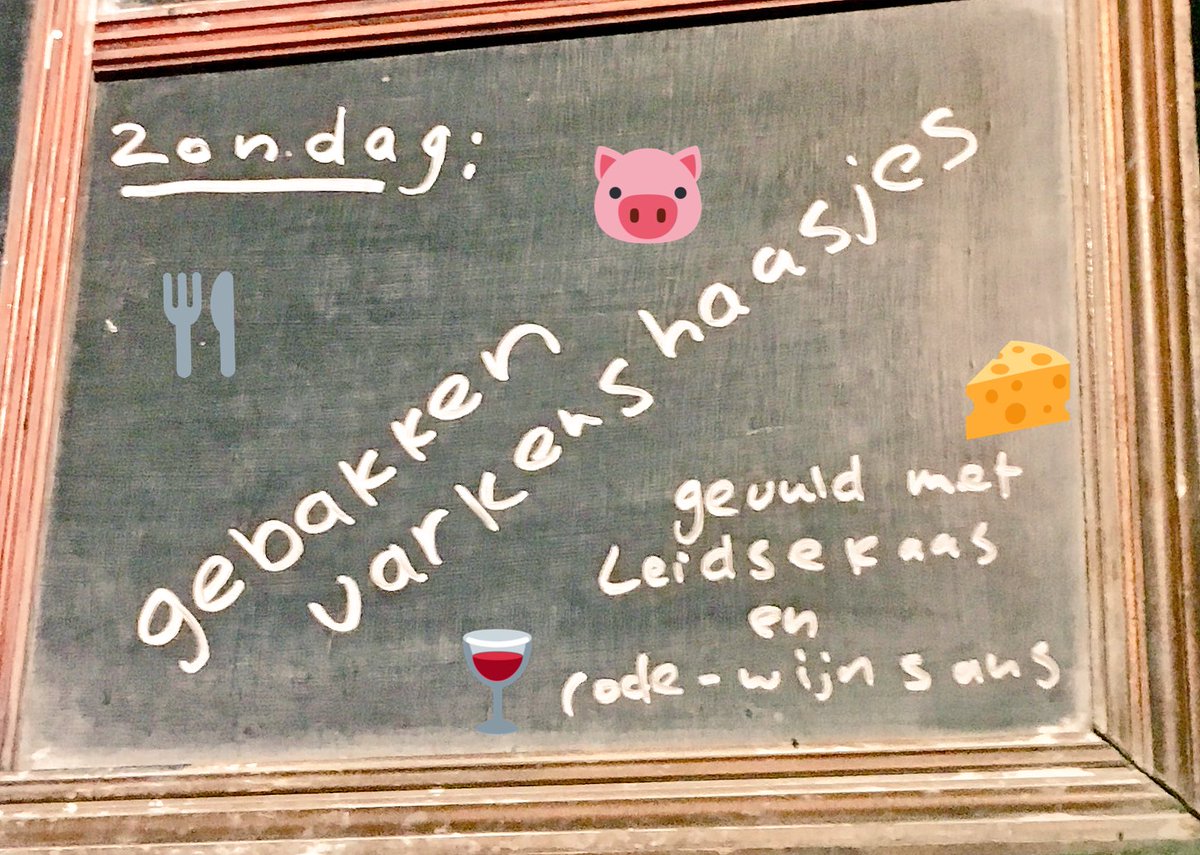 zondag:
gebakken
varkenshaasjes
gevuld met
Leidsekaas
en
rode-wijnsaus